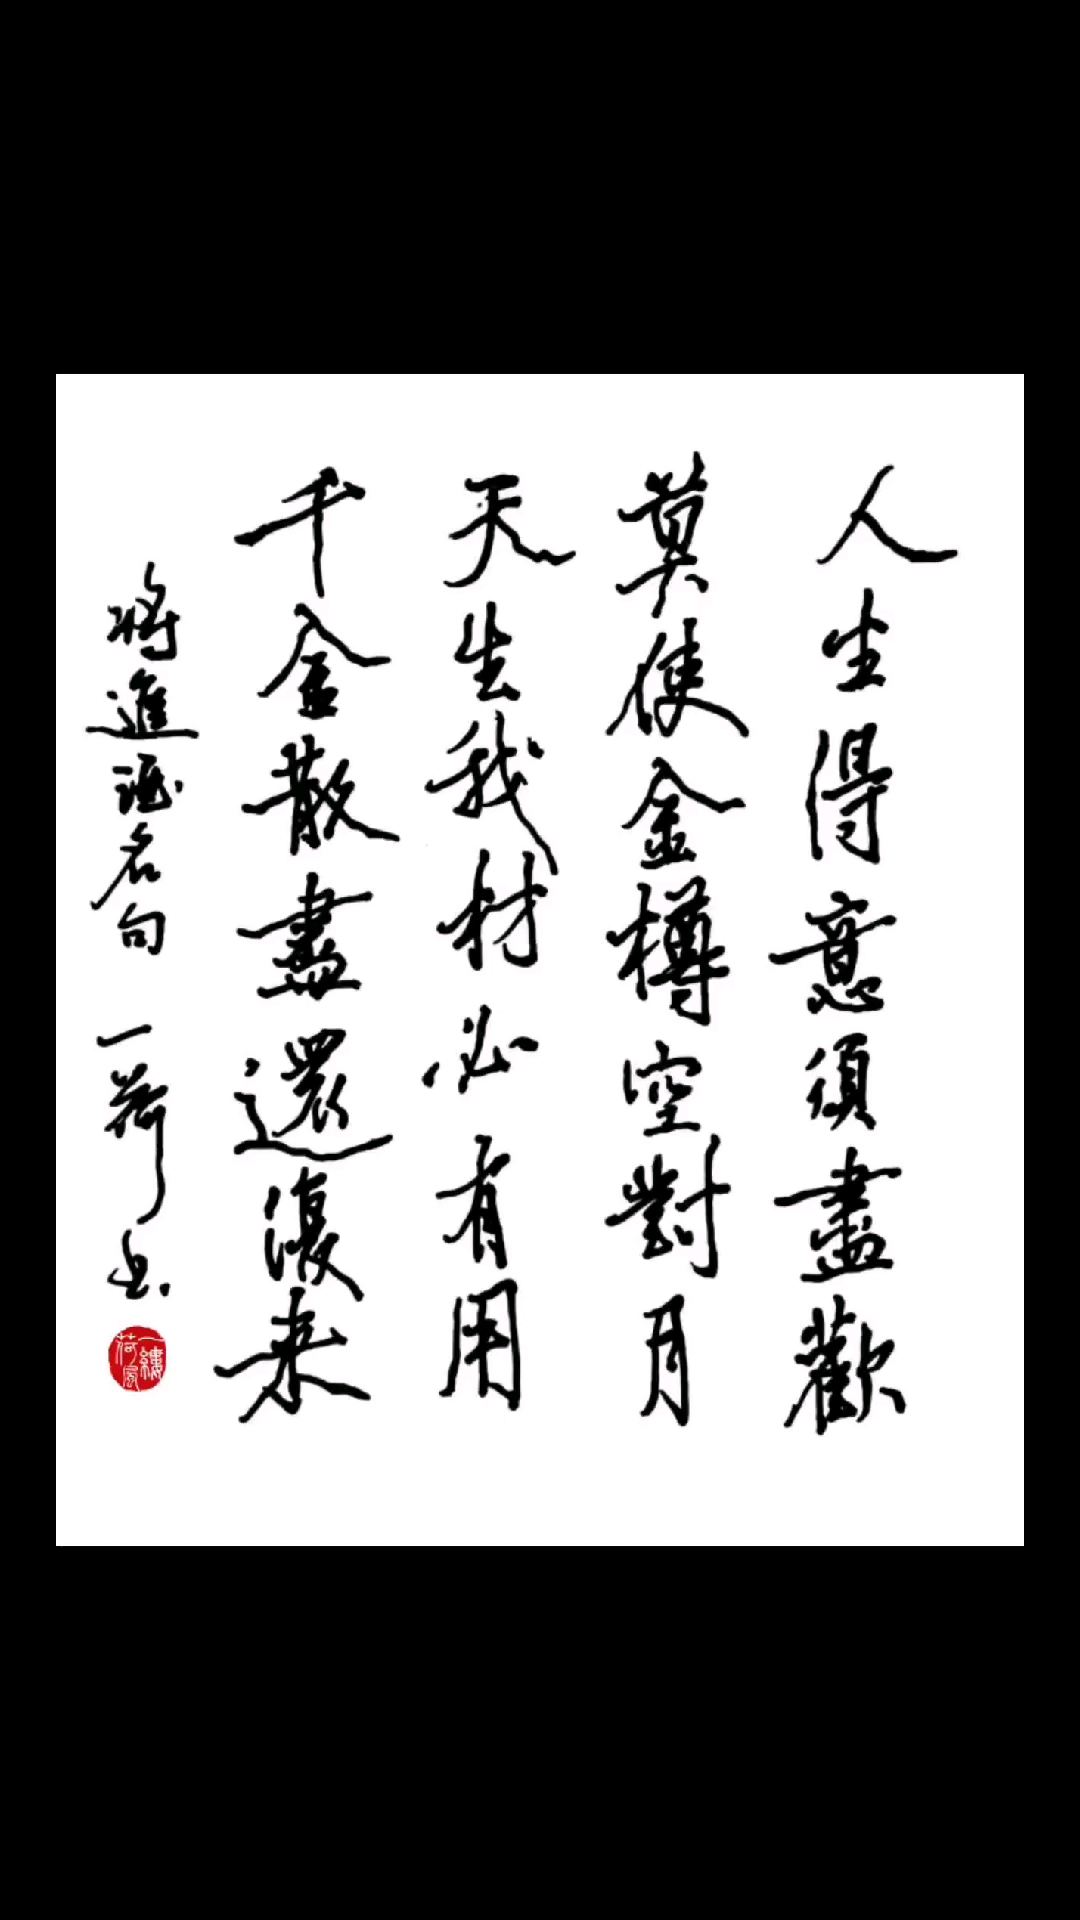 人生得意須盡歡
莫使金樽空對月
天生我材必有用
千金散盡還復来
将進酒名句 一荷书
一缕荷風